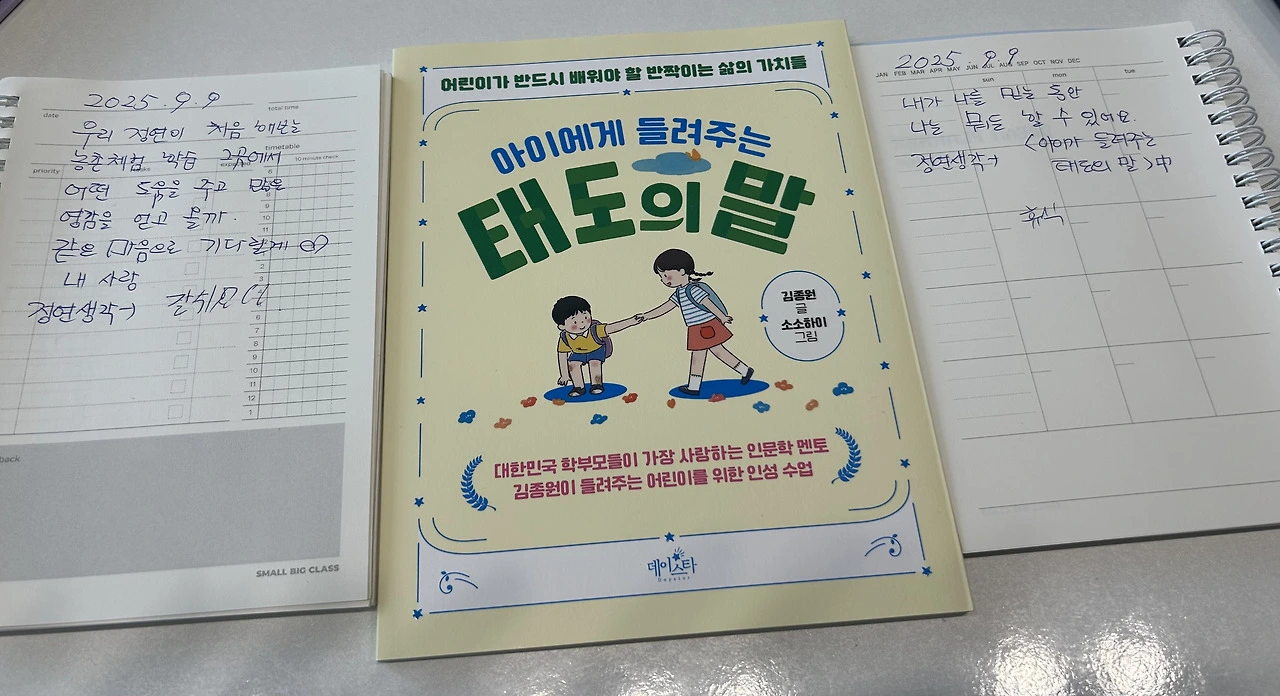 2025. 9. 9
date
total time
우리 정연이 처음 해보는
timetable
농촌체험 학습 그곳에서
priority
10 minute check
어떤 도움을 주고
영감을 얻고 올까.
같은 마음으로 기다릴게
내 사랑
정연생각→
back
SMALL BIG CLASS
어린이가 반드시 배워야 할 반짝이는 삶의 가치들
아이에게 들려주는
태도의 말
김종원
글
소소하이
그림
대한민국 학부모들이 가장 사랑하는 인문학 멘토
김종원이 들려주는 어린이를 위한 인성 수업
데이스타
Daystar
2025. 9. 9
JAN FEB MAR APR MAY JUN JUL AUG SEP OCT NOV DEC
sun mon tue
내가 나를 믿는 동안
나는 뭐든 할 수 있어요.
<아이가 들려주는
태도의 말>中
정연생각→
휴식